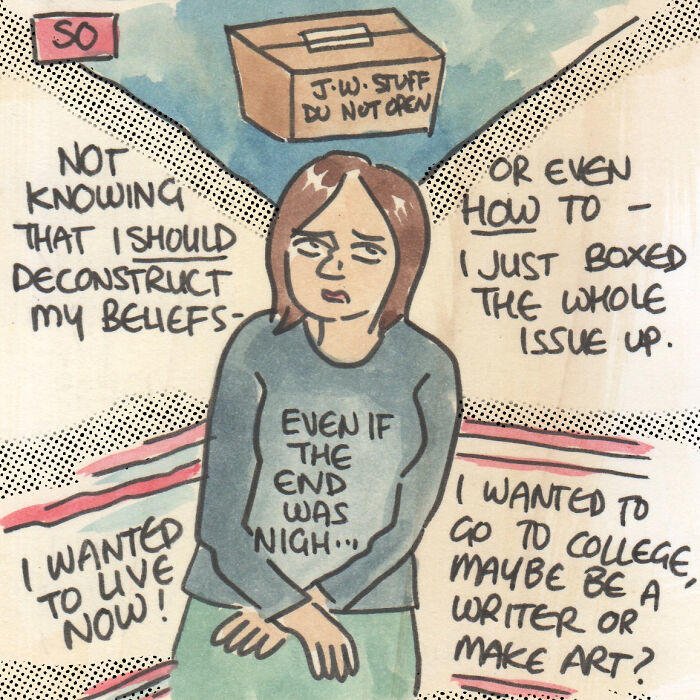 SO
J.W. STUFF
DO NOT OPEN
NOT
KNOWING
THAT I SHOULD
DECONSTRUCT
MY BELIEFS-
OR EVEN
HOW TO -
I JUST BOXED
THE WHOLE
ISSUE UP.
EVEN IF
THE
END
WAS
NIGH...
I WANTED
TO LIVE
NOW!
I WANTED TO
GO TO COLLEGE,
MAYBE BE A
WRITER OR
MAKE ART?